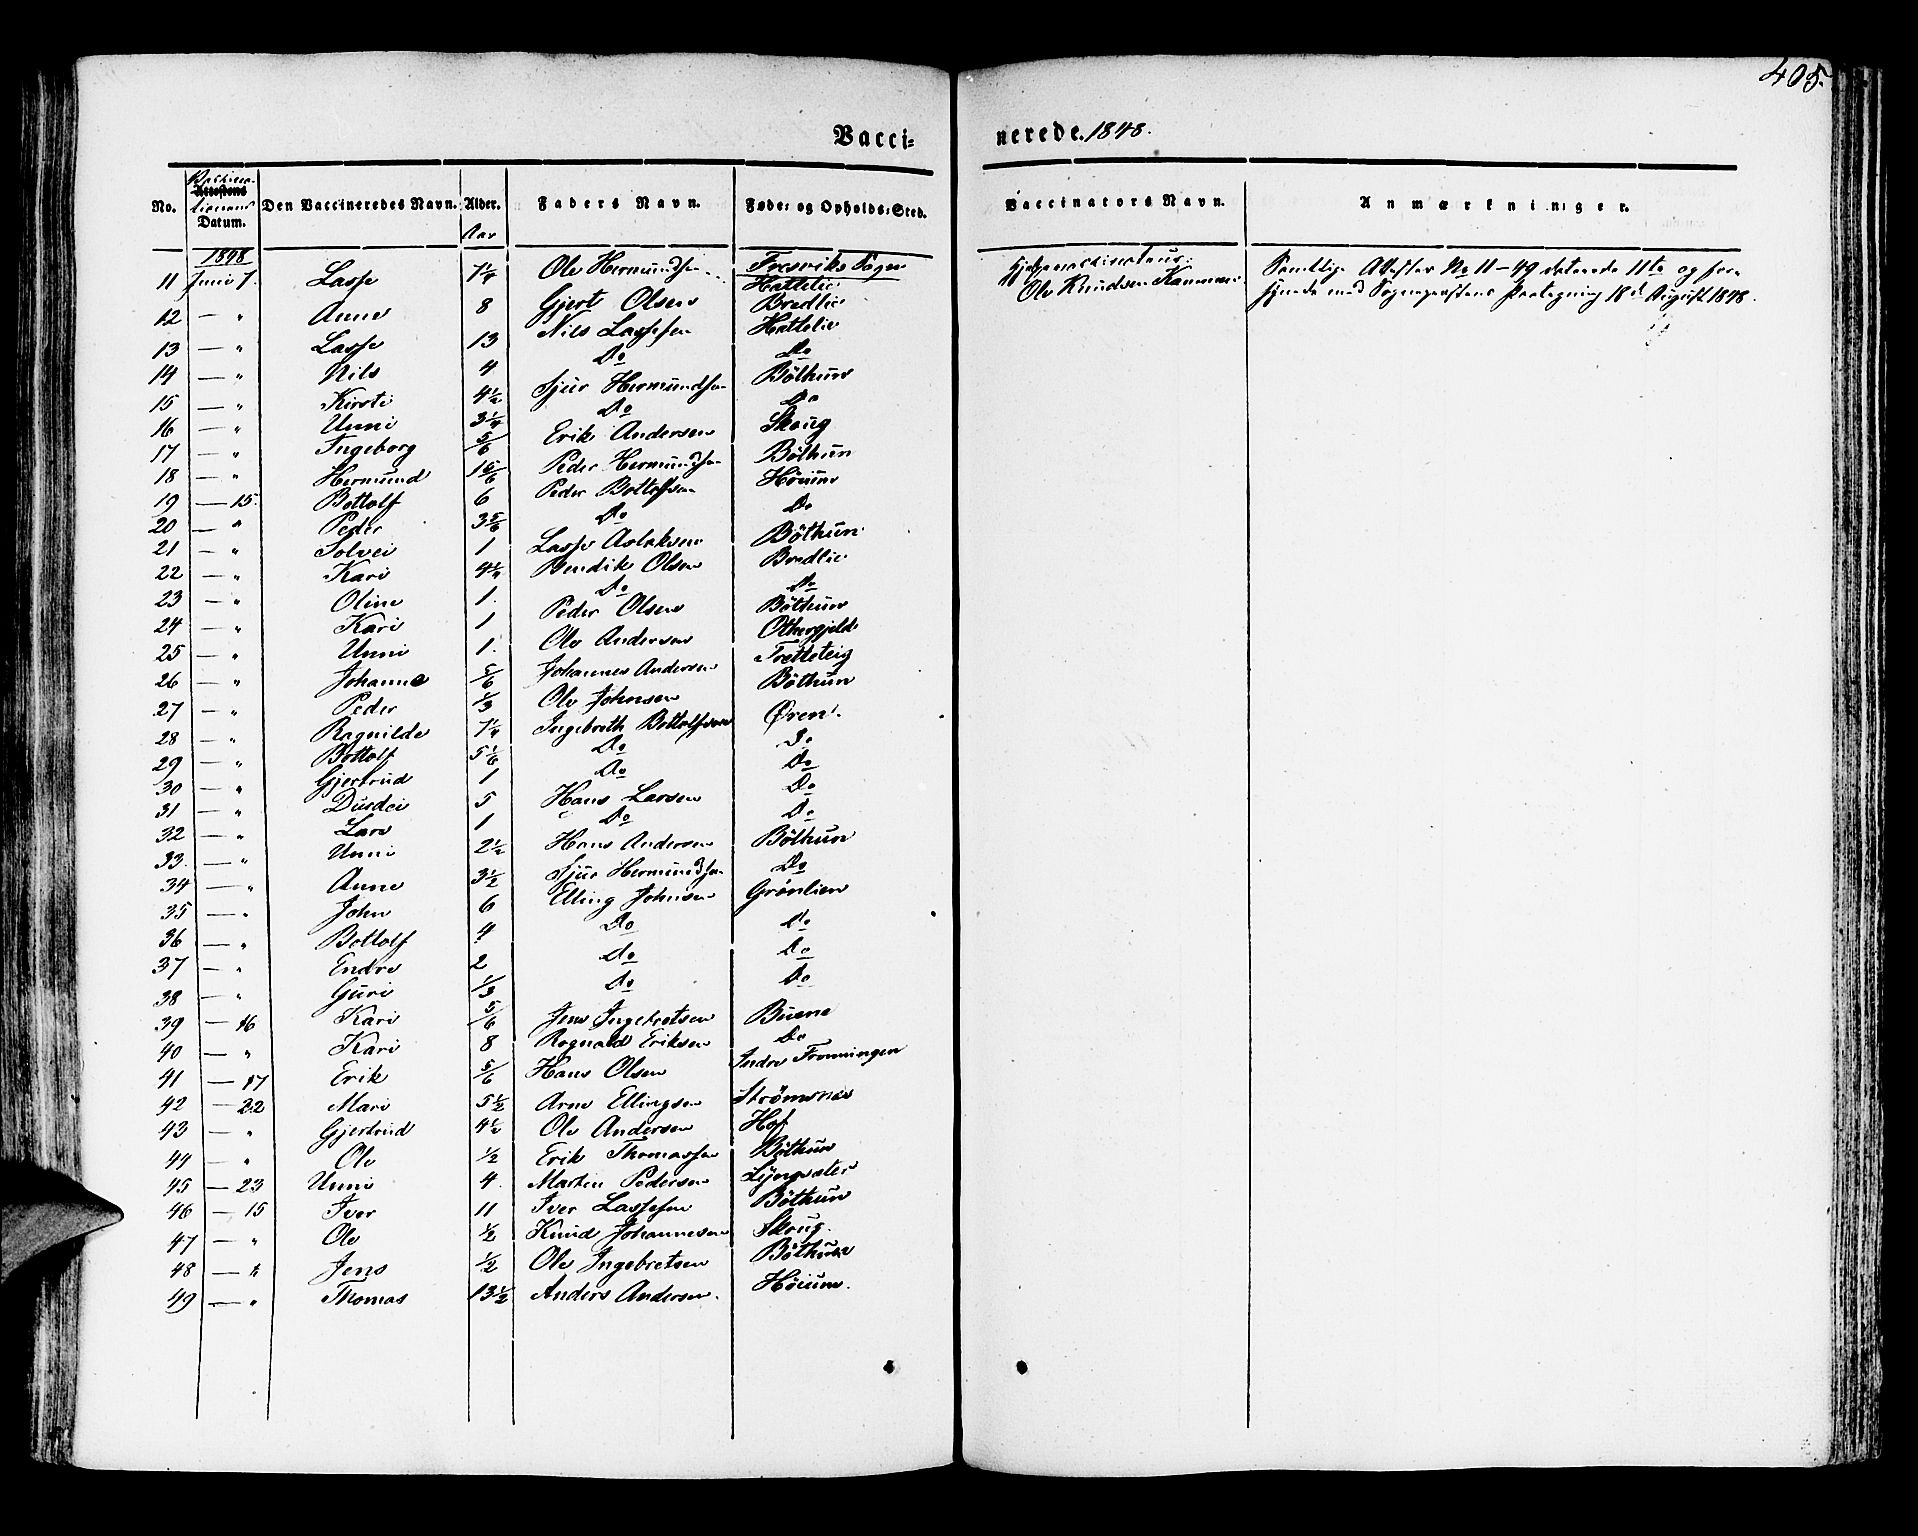 405.
Vacci-
nerede. 1848.
No. Vaccinationens Datum. Den Vaccineredes Navn. Alder. Faders Navn. Føde- og Opholds-Sted. Vaccinators Navn. Anmærkninger.
Attestens
Aar
1848 Fresviks Sogn
11 Juni 7. Lasse 7 1/4 Ole Hermundsen Hattelie Hjelpevaccinateur: Samtlige Attester No 11-49 daterede 11te og for-
Ole Knudsen synede med Sognepræstens Paategning 18d August 1848.
12 — " Anne 8 Gjert Olsen Bredlie
13 — " Lasse 13 Nils Lassesen Hattelie
14 — " Nils 4 Do Do
15 — " Kirsti 4 1/2 Sjur Hermundsen Böthun
16 — " Unni 3 1/4 Do Do
17 — " Ingeborg 5/6 Erik Andersen Skoug
18 — " Hermund 1 5/6 Peder Hermundsen Böthun
19 — 15. Bottolf 6 Peder Bottolfsen Höium
20 — " Peder 3 5/6 Do Do
21 — " Solvei 1 Lasse Aslaksen Böthun
22 — " Kari 4 1/4 Bendik Olsen Bredlie
23 — " Oline 1. Do Do
24 — " Kari 1 Peder Olsen Böthun
25 — " Unni 1. Ole Andersen
26 — " Johanne 5/6 Johannes Andersen Tretteteig
27 — " Peder 1/3 Ole Johnsen Böthun
28 — " Ragnilde 7 1/4 Ingebreth Bottolfsen Øren
29 — " Bottolf 5 1/6 Do Do
30 — " Gjertrud 1 Do Do
31 — " Dusdei 5 Hans Larsen Do
32 — " Lars 1 Do Do
33. — " Unni 2 1/2 Hans Andersen Böthun
34 — " Anne 3 1/2 Sjur Hermundsen Do
35 — " John 6 Elling Johnsen Grönlien
36 — " Bottolf 4 Do Do
37 — " Endre 2 do Do
38 — " Guri 1/3 Do Do
39 — 16 Kari 5/6 Jens Ingebretsen Buene
40 — " Kari 8 Rognald Eriksen Do
41 — 17 Erik 5/6 Hans Olsen Indre Fronningen
42 — 22 Mari 5 1/2 Arne Ellingsen Strömsnes
43 — " Gjertrud 4 1/2 Ole Andersen Hof
44 — " Ole 1/2 Erik Thomassen Böthun
45 — 23 Unni 4 Martin Pedersen Lyngsater
46 — 15 Iver 11 Iver Lassesen Böthun
47 — " Ole 1/2 Knud Johannesen Skoug.
48 — " Jens 1/2 Ole Ingebretsen Böthun
49 — " Thomas 13 1/2 Anders Andersen. Höium.